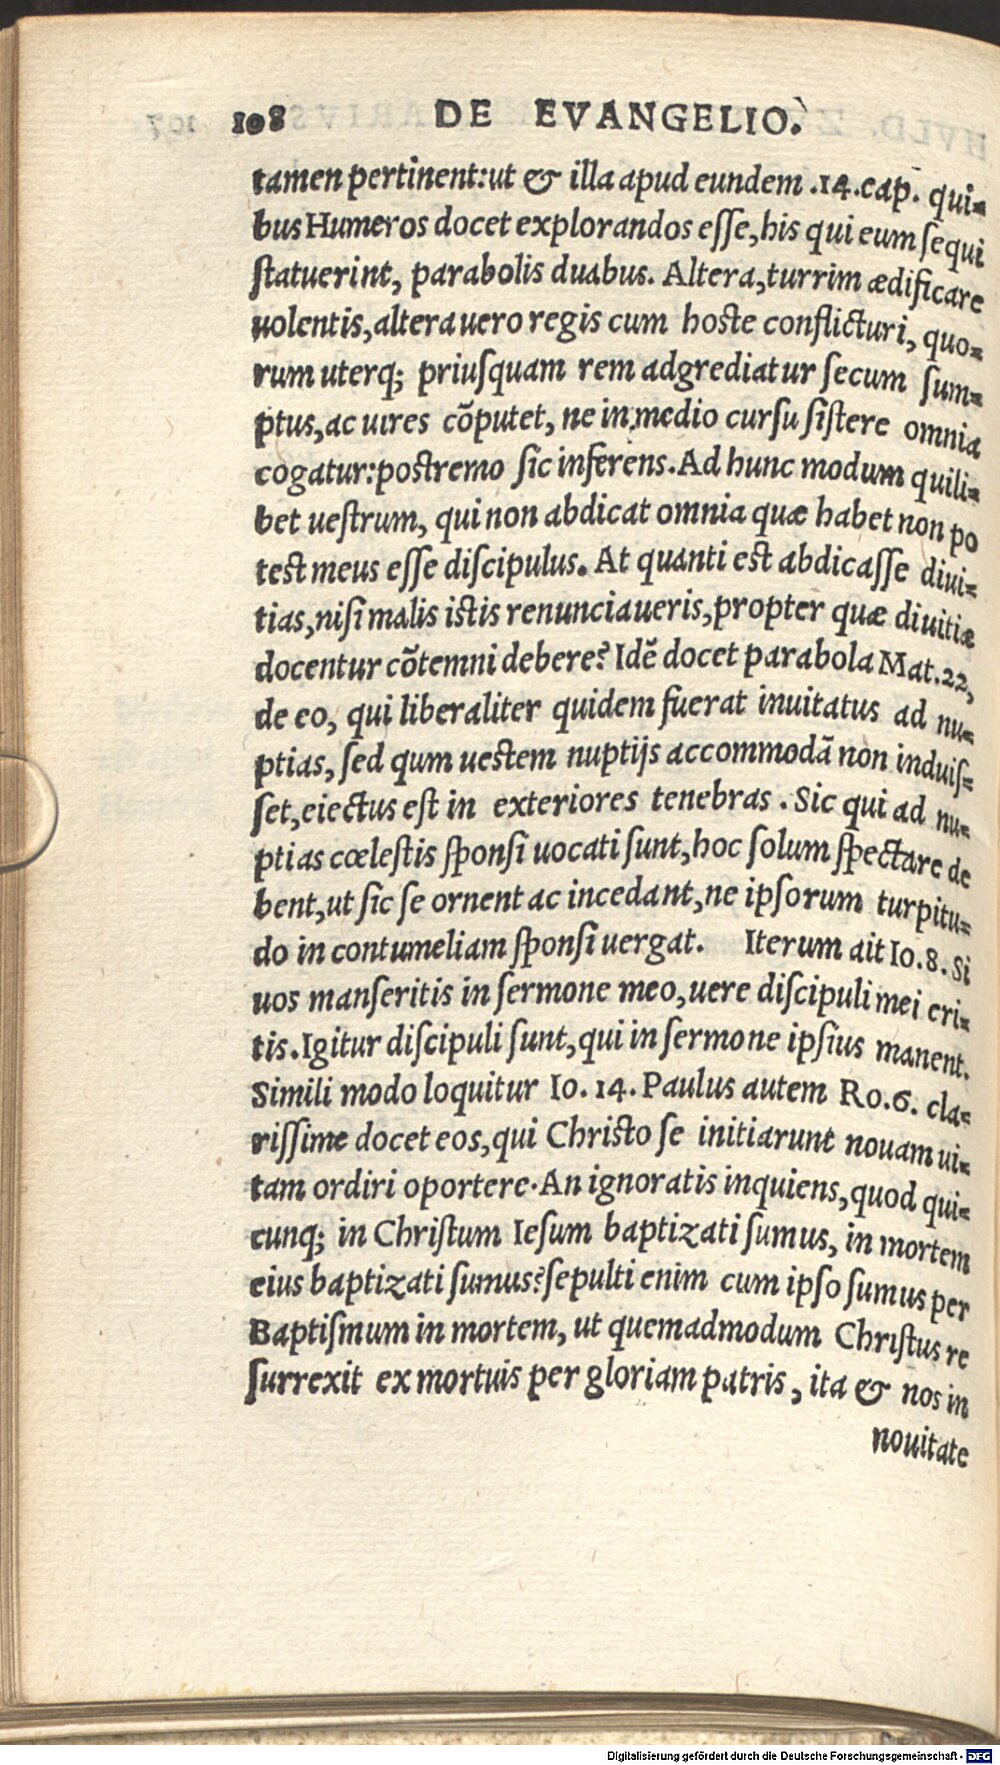 108 DE EVANGELIO.
tamen pertinent: ut & illa apud eundem .14. cap. qui-
bus Humeros docet explorandos eſſe, his qui eum ſequi
ſtatuerint, parabolis duabus. Altera, turrim ædificare
uolentis, altera uero regis cum hoſte conflicturi, quo-
rum uterq; priuſquam rem adgrediatur ſecum ſum-
ptus, ac uires cõputet, ne in medio curſu ſiſtere omnia
cogatur: poſtremo ſic inferens. Ad hunc modum quili-
bet ueſtrum, qui non abdicat omnia quæ habet non po
teſt meus eſſe diſcipulus. At quanti eſt abdicaſſe diui-
tias, niſi malis iſtis renunciaueris, propter quæ diuitiæ
docentur cõtemni debere? Idẽ docet parabola Mat.22,
de eo, qui liberaliter quidem fuerat inuitatus ad nu-
ptias, ſed qum ueſtem nuptijs accommodã non induiſ-
ſet, eiectus eſt in exteriores tenebras. Sic qui ad nu-
ptias cœleſtis ſponſi uocati ſunt, hoc ſolum ſpectare de
bent, ut ſic ſe ornent ac incedant, ne ipſorum turpitu-
do in contumeliam ſponſi uergat. Iterum ait Io.8. Si
uos manſeritis in ſermone meo, uere diſcipuli mei eri-
tis. Igitur diſcipuli ſunt, qui in ſermone ipſius manent.
Simili modo loquitur Io. 14. Paulus autem Ro.6. cla-
riſſime docet eos, qui Chriſto ſe initiarunt nouam ui-
tam ordiri oportere. An ignoratis inquiens, quod qui-
cunq; in Chriſtum Ieſum baptizati ſumus, in mortem
eius baptizati ſumus? ſepulti enim cum ipſo ſumus per
Baptiſmum in mortem, ut quemadmodum Chriſtus re
ſurrexit ex mortuis per gloriam patris, ita & nos in
nouitate
Digitalisierung gefördert durch die Deutsche Forschungsgemeinschaft - DFG